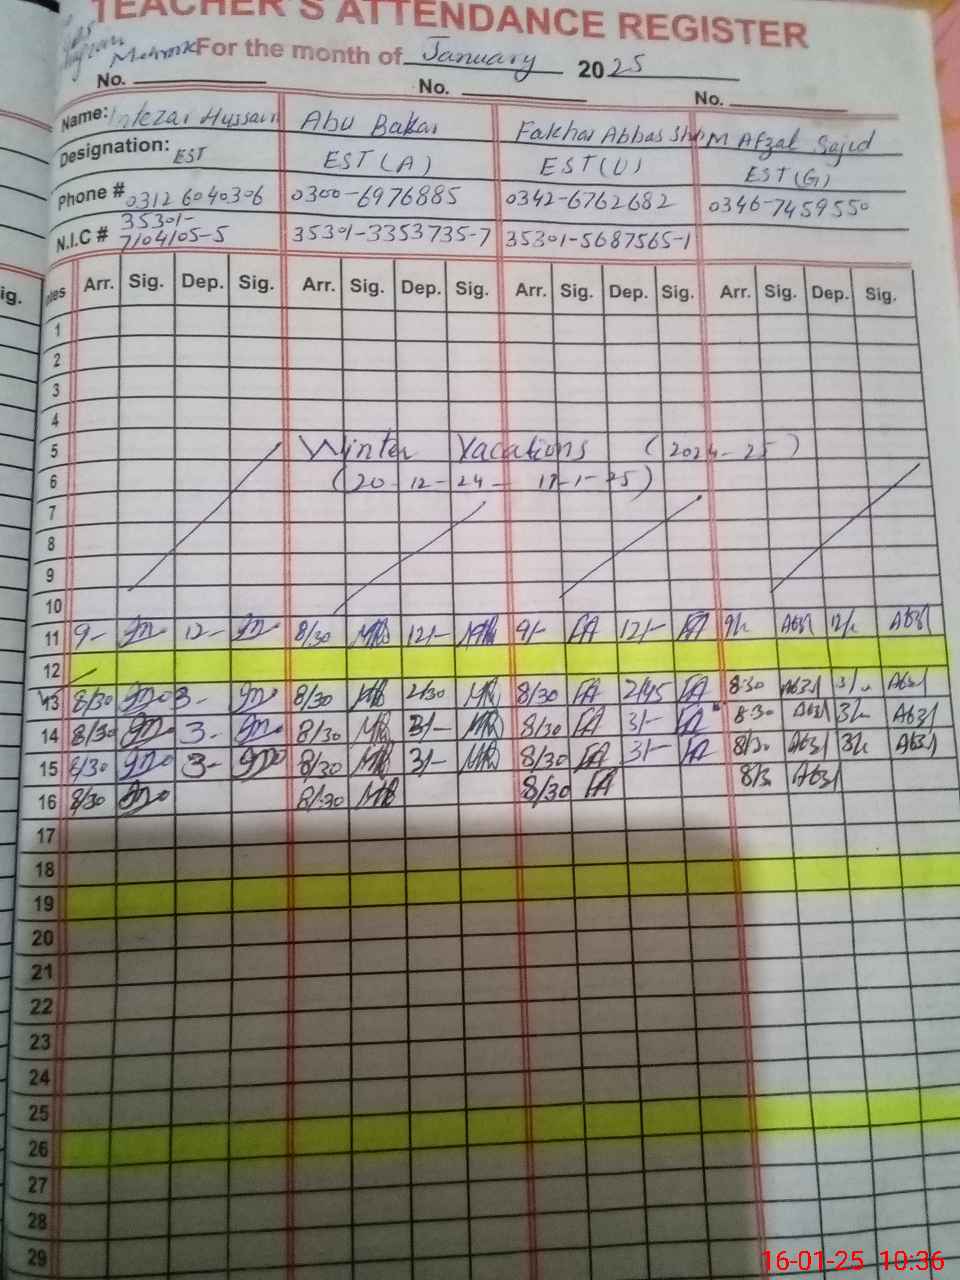 TEACHER'S ATTENDANCE REGISTER
For the month of January 2025
No. No. No.
Name: Intezar Hussain Abu Bakar Fakhar Abbas M Afzal Sajid
Designation: EST EST (A) EST (U) EST (G)
Phone # 0312 6040306 0300-6976885 0342-6762682 0346-7459550
N.I.C # 35301-7104105-5 35301-3353735-7 35301-5687565-1
ig. Arr. Sig. Dep. Sig. Arr. Sig. Dep. Sig. Arr. Sig. Dep. Sig. Arr. Sig. Dep. Sig.
1
2
3
4
5 Winter Vacations (2024-25)
6 (20-12-24 - -1-25)
7
8
9
10
11 9- 12- 8/30 12/- 9/- FA 12/- FA
12
13 8/30 3- 8/30 2/30 8/30 FA 2/45 FA 8:30
14 8/30 3- 8/30 3/- 8/30 FA 3/- FA 8:30
15 8/30 3- 8/30 3/- 8/30 FA 3/- FA 8/30
16 8/30 8/30 8/30 FA
17
18
19
20
21
22
23
24
25
26
27
28
29
16-01-25 10:36